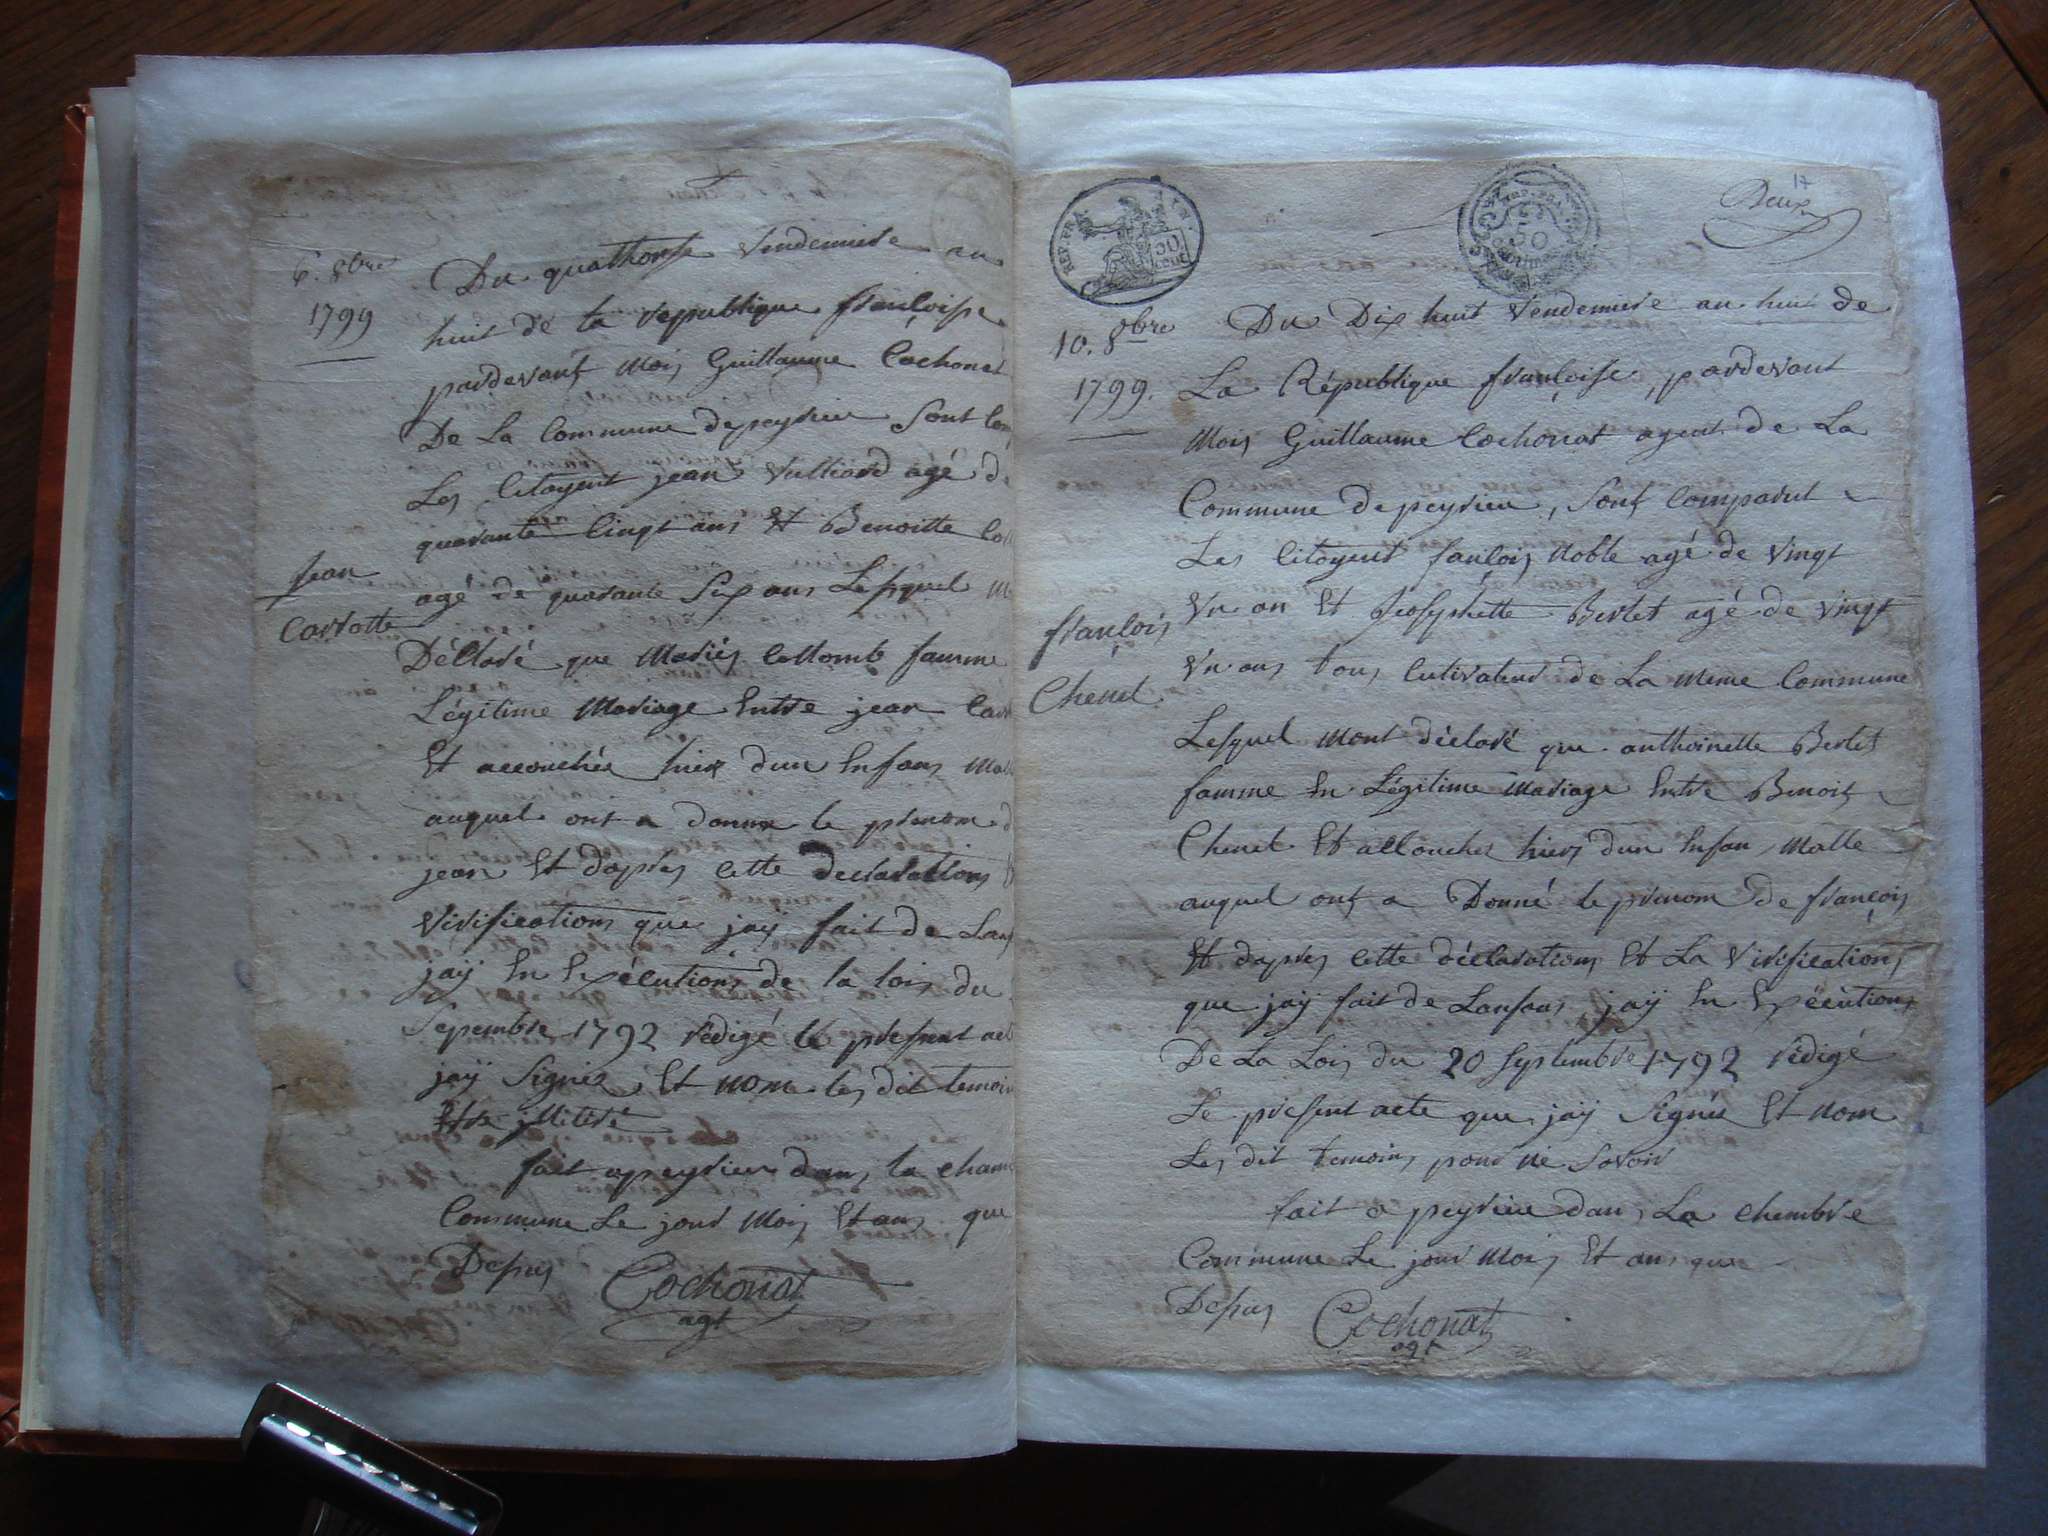 6. 8bre
1799
Du quathorse Vendemiere an
huit de la republique françoise
pardevant Moi Guillaume Cochonat
De La Commune de peyrieu Sont Com
Les Citoyent jean Vulliard agé de
quarante Cinqt ans Et Benoitte Col
agé de quarante Six ans Lesquel
Jean
Carrotte
Déclaré que Mariés Collomb famme
Légitime Mariage Entre jean Car
Et accouchée hier dun Enfans Mall
auquel ont a donné le prenom d
jean Et dapres Cette declarations
Virifications que jaÿ fait de Lanf
jaÿ En Expécutions de la lois du
Sepembre 1792 rédigé le présent act
jaÿ Signée Et nom les dit temoin
Etre jlliteré
fait a peyrieu dans la cham
Commune Le jour Mois Et ans que
Desus Cochonat
agt
REP. FRA.
50
cent
50
centim
17
Deux
10. 8bre
1799.
Du Dix huit Vendemiere an huit de
La République françoise, pardevant
Mois Guillaume Cochonat agent de La
Commune de peyrieu, Sont Comparut
Les Citoyent françois Noble agé de Vingt
Vn an Et Joosephette Berlet agé de Vingt
françois
Chenet
Vn ans tous Cutivateur de La meme Commune
Lesquel mont déclaré que anthoinette Berlet
famme En Légitime Mariage Entre Benoit
Chenet Et accouchez hiers dun Enfan Malle
auquel ont a Donné le prenom de françois
Et dapres Cette déclarations Et La Virifications
que jaÿ fait de Lanfans jaÿ En Expécutions
De La Lois du 20 Septembre 1792 rédigé
Le présent acte que jaÿ Signée Et nom
Les dit temoins pour ne Savoir
fait a peyrieu dans La Chembre
Commune Le jour Mois Et ans que
Desus Cochonat
agt